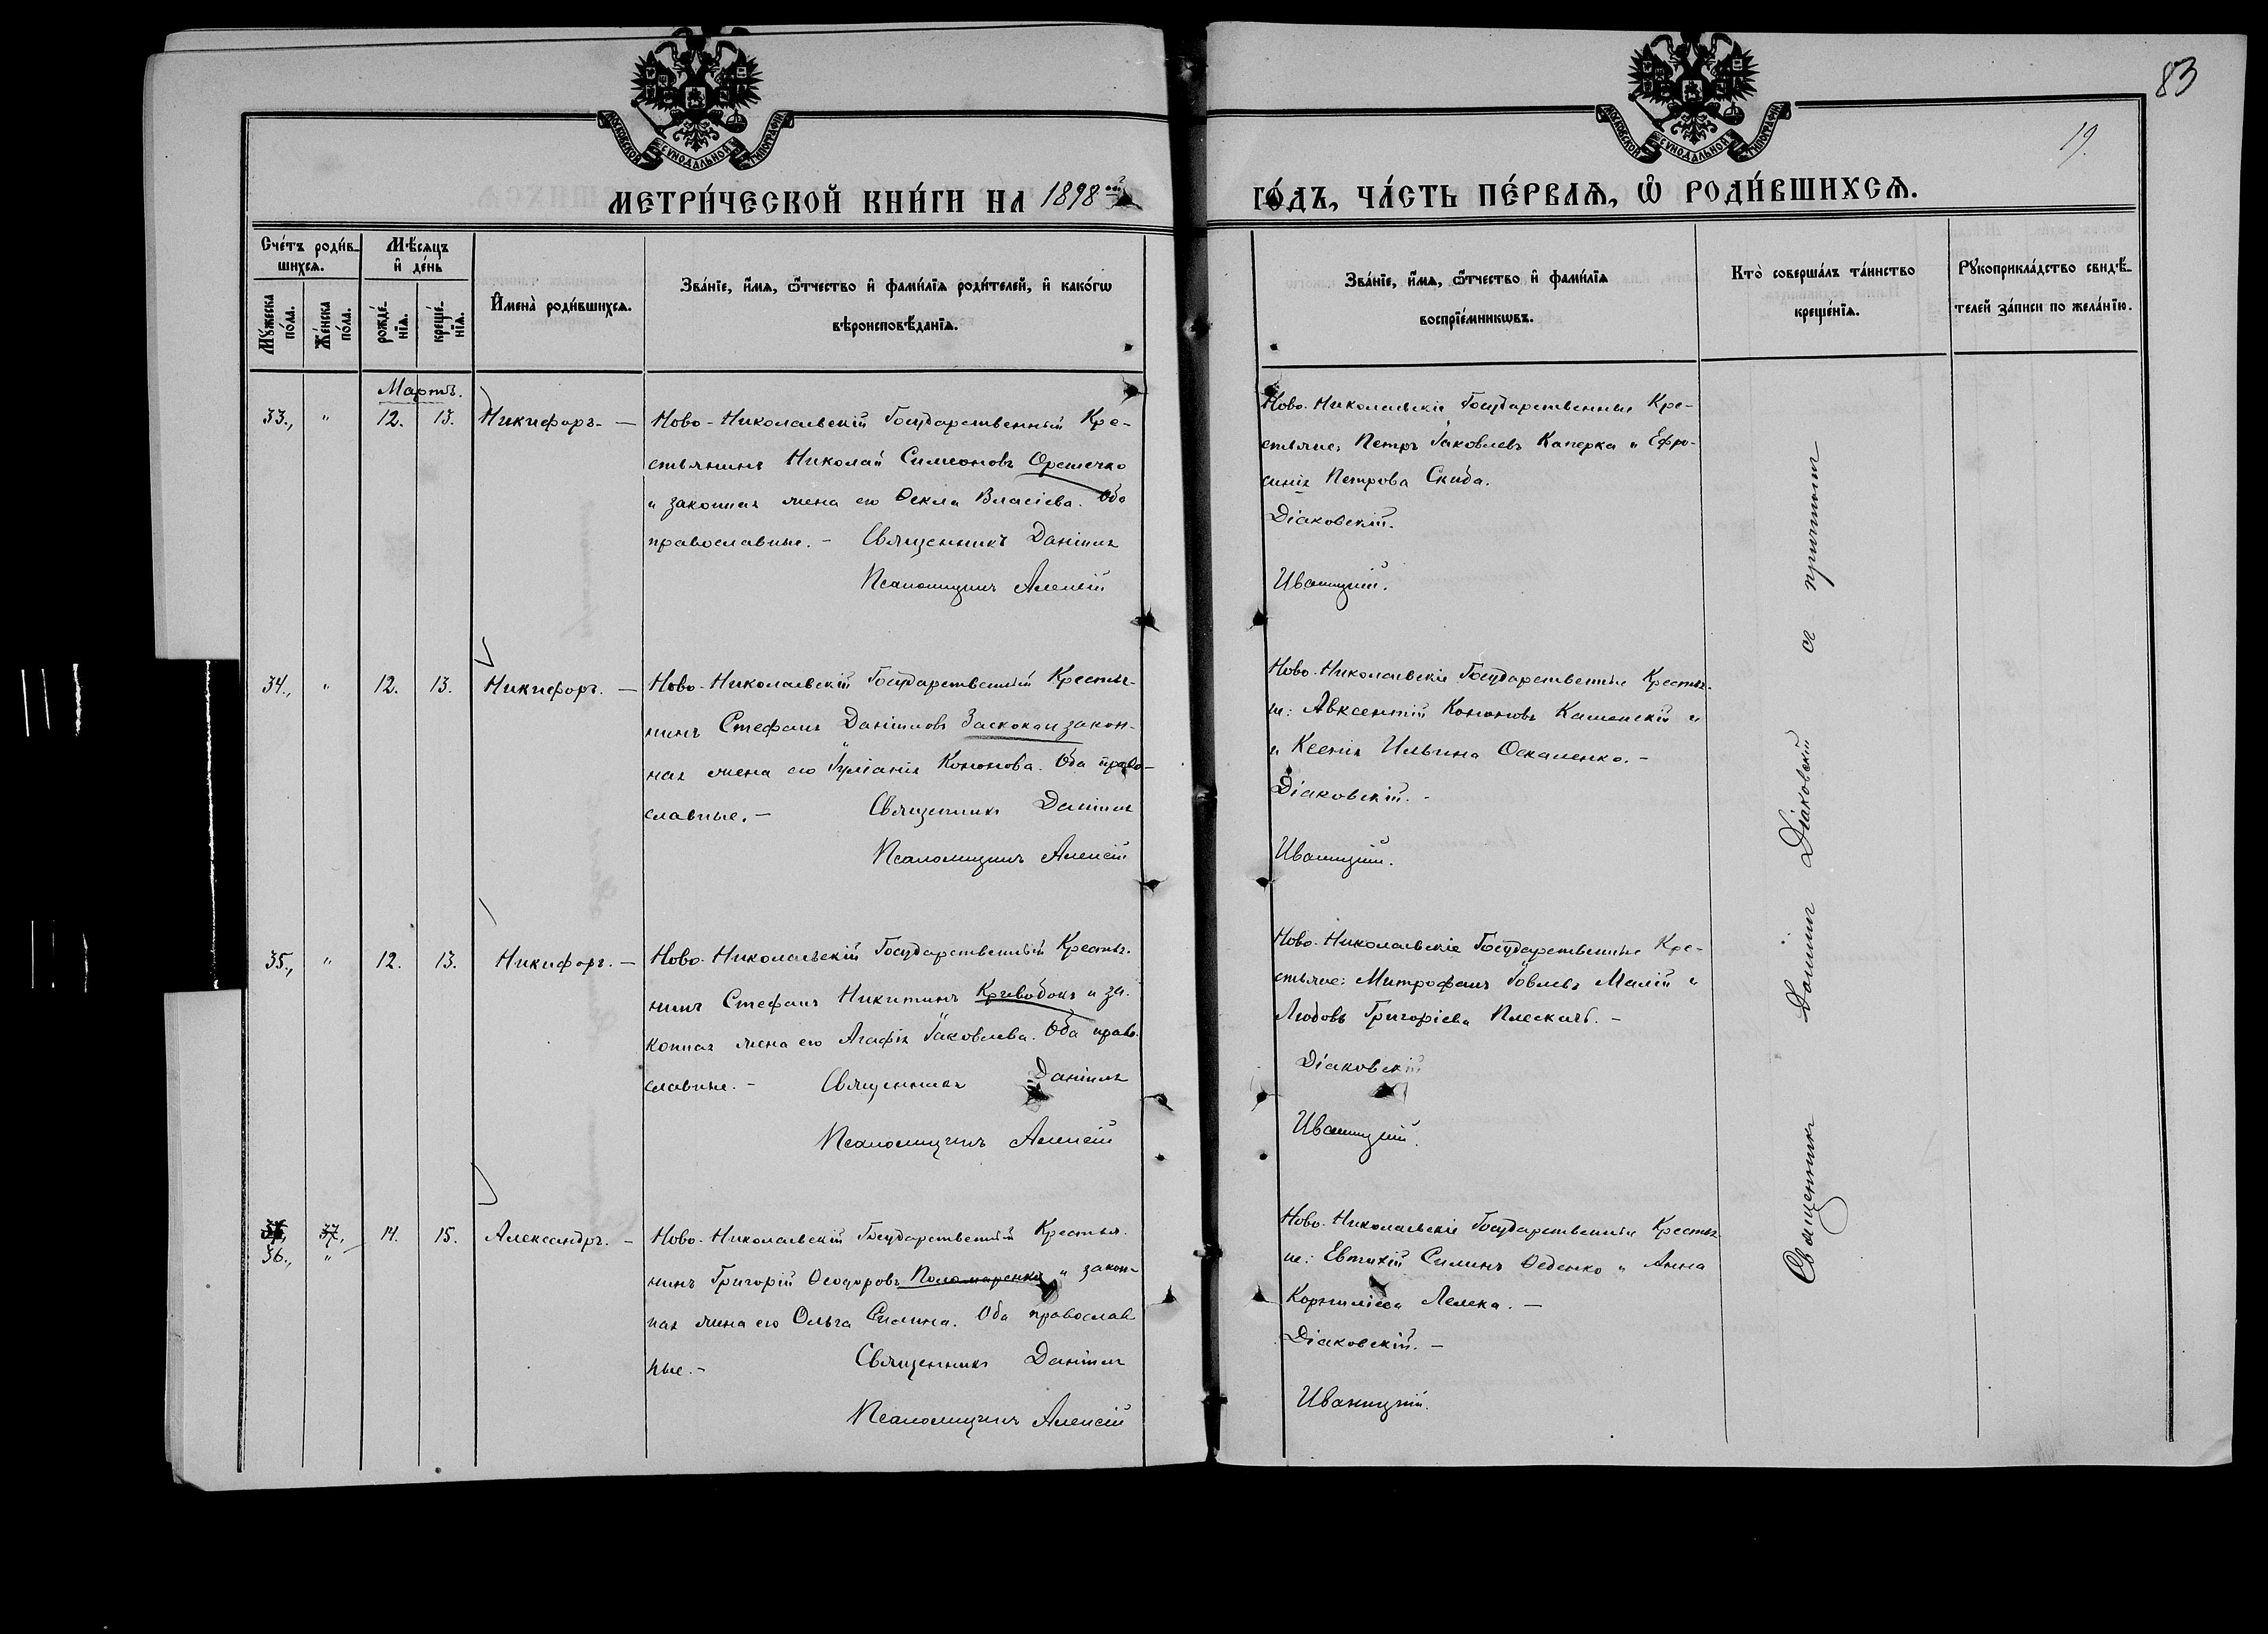 83
19.
МОСКОВСКОЙ СѴНОДАЛЬНОЙ ТИПОГРАФІИ
МОСКОВСКОЙ СѴНОДАЛЬНОЙ ТИПОГРАФІИ
МЕТРИ́ЧЕСКОЙ КНИ́ГИ НА 1898 ой
ГО́ДЪ, ЧА́СТЬ ПЕ́РВАѦ, Ѡ҆ РОДИ́ВШИХСѦ.
Сче́тъ роди́в-
шихсѧ.
Мꙋ́жеска по́ла.
Же́нска по́ла.
Мѣ́сѧцъ
и҆ де́нь
рожде́-
нїѧ.
креще́-
нїѧ.
И҆мена̀ роди́вшихсѧ.
Зва́нїе, и҆́мѧ, ѻ҆́тчество и҆ фами́лїѧ роди́телей, и҆ како́гѡ
вѣроисповѣ́данїѧ.
Зва́нїе, и҆́мѧ, ѻ҆́тчество и҆ фами́лїѧ
воспрїе́мникѡвъ.
Кто̀ соверша́лъ та́инство
креще́нїѧ.
Рꙋкоприкла́дство свидѣ́-
телей за́писи по жела́нїю.
Мартъ.
33., " 12. 13. Никифоръ. —
Ново-Николаевскій Государственный Кре-
стьянинъ Николай Симеоновъ Орешечко
и законная жена его Ѳекла Власіева. Оба
православные. – Священникъ Даніилъ
Псаломщикъ Алексій
Ново-Николаевскіе Государственные Кре-
стьяне: Петръ Іаковлевъ Каперка и Ефро-
синія Петрова Скиба.
Діаковскій.
Иваницкій.
34., " 12. 13. Никифоръ. —
Ново-Николаевскій Государственный Крестья-
нинъ Стефанъ Даніиловъ Заскока и закон-
ная жена его Іуліанія Кононова. Оба право-
славные. – Священникъ Даніилъ
Псаломщикъ Алексій
Ново-Николаевскіе Государственные Крестья-
не: Авксентій Кононовъ Каменскій и
и Ксенія Ильина Оскаленко. –
Діаковскій. -
Иваницкій.
35., " 12. 13. Никифоръ. —
Ново-Николаевскій Государственный Крестья-
нинъ Стефанъ Никитинъ Кривобокъ и за-
конная жена его Агафія Іаковлева. Оба право-
славные. – Священникъ Даніилъ
Псаломщикъ Алексій
Ново-Николаевскіе Государственные Кре-
стьяне: Митрофанъ Іовлевъ Малій и
Любовь Григоріева Плескачъ. –
Діаковскій
Иваницкій.
37,
36., " 14. 15. Александръ. –
Ново-Николаевскій Государственный Крестья-
нинъ Григорій Ѳеодоровъ Поломаренко и закон-
ная жена его Ольга Силина. Оба православ
ные. – Священникъ Даніилъ
Псаломщикъ Алексій
Ново-Николаевскіе Государственные Крестья-
не: Евтихій Силинъ Ѳеденко и Анна
Корниліева Лелека. –
Діаковскій. –
Иваницкій.
Священникъ Даніилъ Діаковскій съ причтомъ